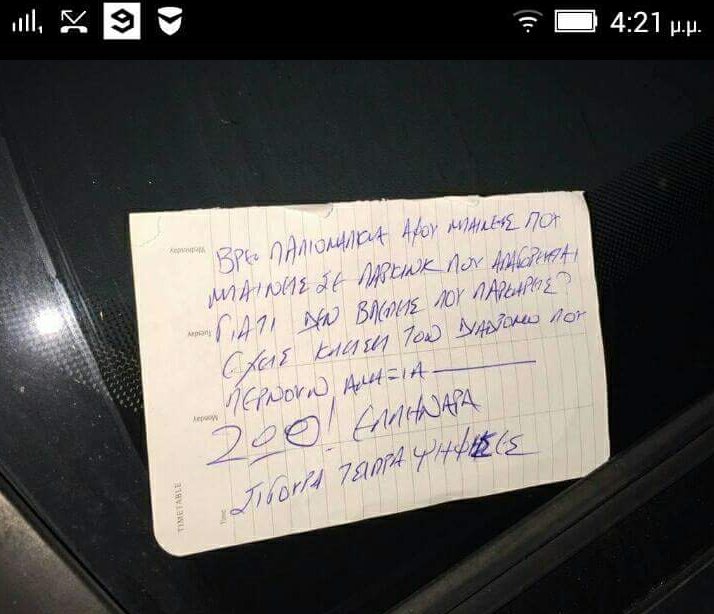 4:21 μ.μ.
Wednesday
ΒΡΕ ΠΑΛΙΟΜΑΛΚΑ ΑΦΟΥ ΜΠΑΙΝΕΙΣ ΠΟΥ
ΜΠΑΙΝΕΙΣ ΣΕ ΠΑΡΚΙΝΚ ΠΟΥ ΑΠΑΓΟΡΕΥΕΤΑΙ
Tuesday
ΓΙΑΤΙ ΔΕΝ ΒΛΕΠΕΙΣ ΠΟΥ ΠΑΡΚΑΡΕΙΣ?
ΕΧΕΙΣ ΚΛΕΙΣΕΙ ΤΟΝ ΔΙΑΔΡΟΜΟ ΠΟΥ
ΠΕΡΝΟΥΝ ΑΜΑΞΙΑ
Monday
ΖΩΟ! ΕΛΛΗΝΑΡΑ
ΣΙΓΟΥΡΑ ΤΣΙΠΡΑ ΨΗΦΙΣΕΣ
Time
TIMETABLE